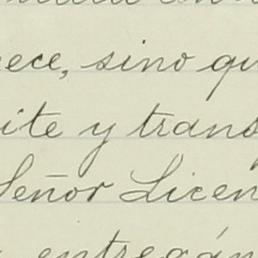 ece, sino qu
ite y trans
Señor Licen
entregán